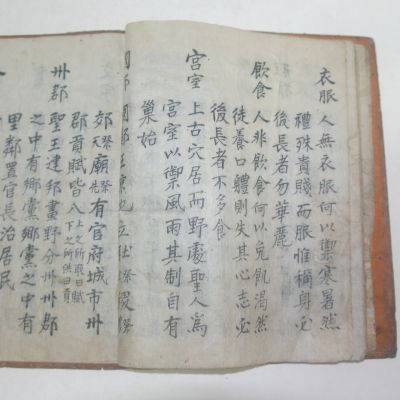 衣服 人無衣服何以禦寒暑然
禮殊貴賤而服惟稱身必
後長者勿華麗
飮食 人非飮食何以免飢渴然
徒養口體則失其心志必
後長者不多食
宮室 上古穴居而野處聖人爲
宮室以禦風雨其制自有
巢始
國都 國都王
郊祭天廟祭先有官府城市州
郡貢賦皆入上之所取曰賦下之所供曰貢
州郡 聖王建邦畫野分州州郡
之中有鄕黨鄕黨之中有
里鄰置官長治居民